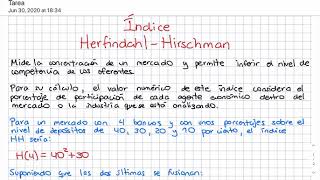 Tarea
Jun 30, 2020 at 18:34
Índice
Herfindahl-Hirschman
Mide la concentración de un mercado y permite inferir el nivel de
competencia de los oferentes.
Para su cálculo, el valor numérico de este índice considera el
porcentaje de participación de cada agente económico dentro del
mercado o la industria que se está analizando.
Para un mercado con 4 bancos y con unos porcentajes sobre el
nivel de depósitos de 40, 30, 20 y 10 por ciento, el índice
HH sería:
H(4) = 40²+30
Suponiendo que los dos últimos se fusionan: